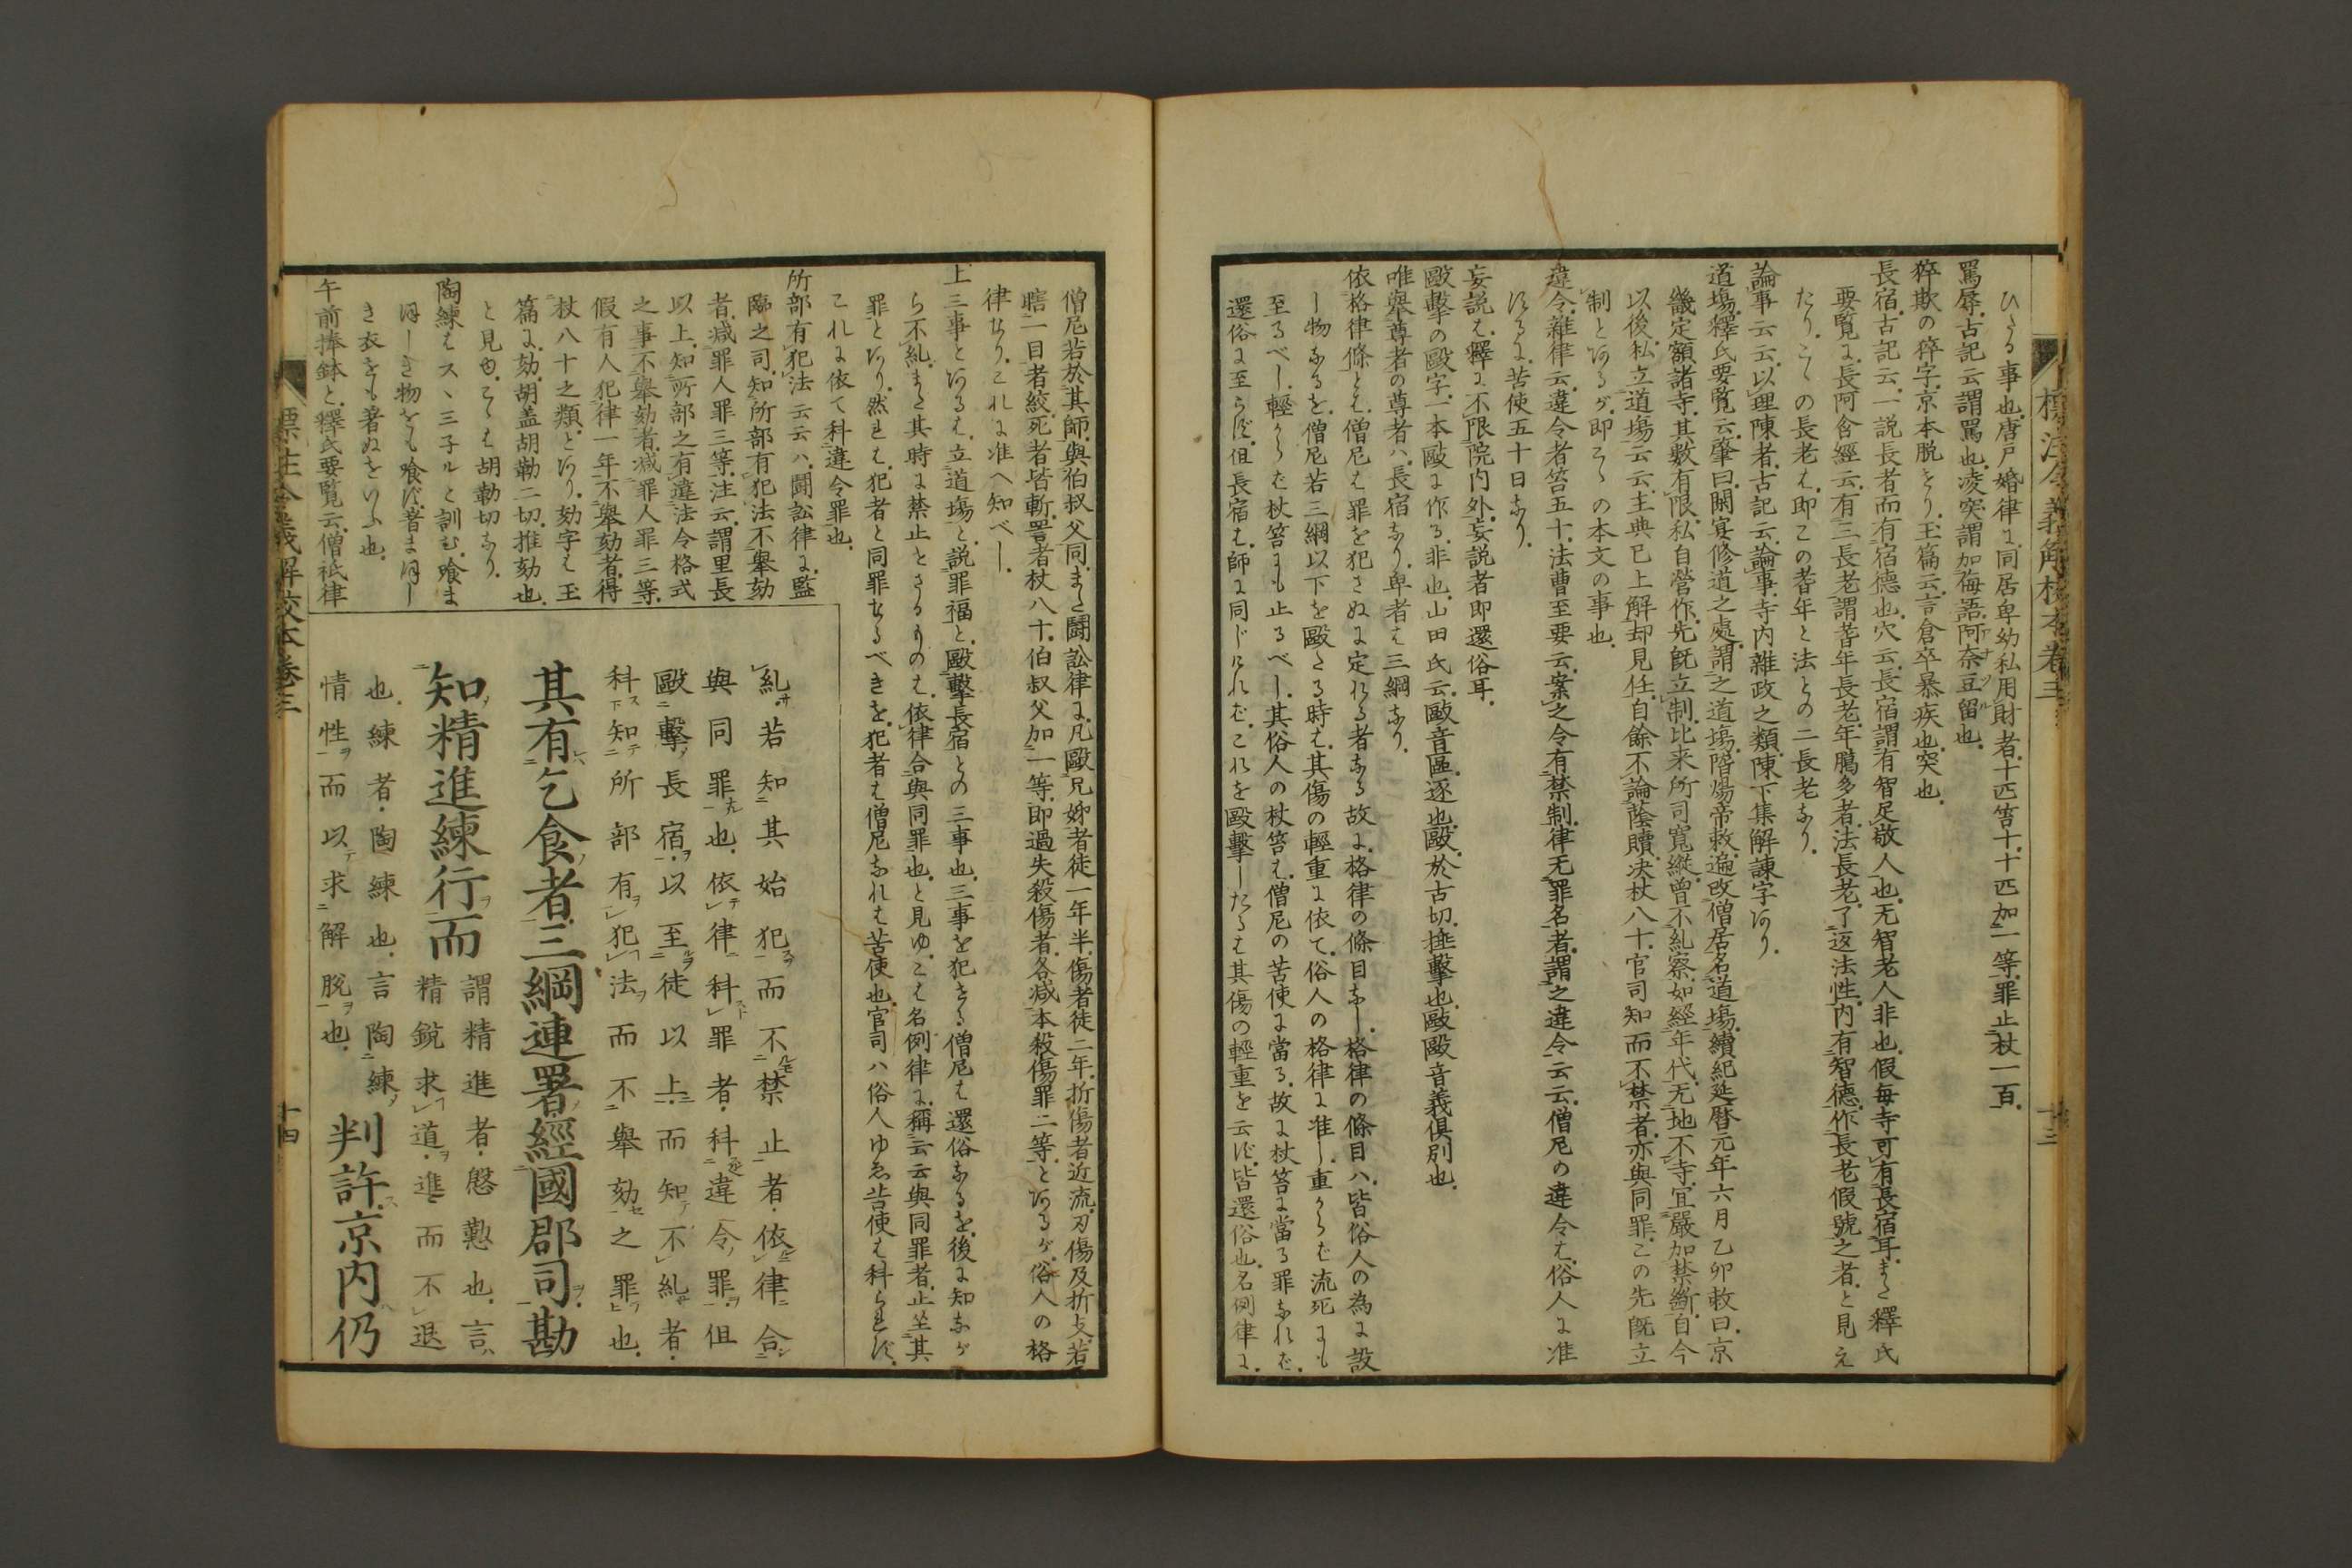 標注令義解校本卷三
十三
ひたる事也。唐戸婚律に。同居卑幼私用財者。十匹笞十。十匹加一等。罪止杖一百。
罵辱。古記云。謂罵也。凌突謂加侮語。阿奈豆留也。
猝欺の猝字。京本脱せり。玉篇云。言倉卒暴疾也。突也。
長宿。古記云。一説長者而有宿德也。穴云。長宿謂有智足敬人也。无智老人非也。假每寺可有長宿耳。また釋氏
要覧に。長阿含經云。有三長老。謂耆年長老。年臈多者。法長老。了返法性。内有智德。作長老假號之者。と見え
たり。こゝの長老は。即この耆年と法との二長老なり。
論事云云。以理陳者。古記云。論事。寺内雜政之類。陳下集解諫字あり。
道場。釋氏要覧云。肇曰。閑宴修道之處。謂之道場。隋煬帝敕。遍改僧居名道場。續紀延暦元年六月乙卯敕曰。京
畿定額諸寺。其數有限。私自營作。先既立制。比来所司寬縱。曾不糺察。如經年代。无地不寺。宜嚴加禁斷。自今
以後。私立道場云云。主典已上解却見任。自餘不論蔭贖。决杖八十。官司知而不禁者。亦與同罪。この先既立
制とあるが。即こゝの本文の事也。
違令。雜律云。違令者笞五十。法曹至要云。案之令有禁制。律无罪名者。謂之違令云云。僧尼の違令は。俗人に准
ずるに。苦使五十日なり。
妄説は。釋に不限院内外。妄説者即還俗耳。
毆擊の毆字。一本歐に作る。非也。山田氏云。敺音區。逐也。毆。於古切。捶擊也。敺毆音義俱別也。
唯舉尊者の尊者ハ。長宿なり。卑者は三綱なり。
依格律條とは。僧尼は罪を犯さぬに定れる者なる故に。格律の條目なし。格律の條目ハ。皆俗人の為に設
し物なるを。僧尼若三綱以下を毆たる時は。其傷の輕重に依て。俗人の格律に准し。重からば流死にも
至るべし。輕からば杖笞にも止るべし。其俗人の杖笞は。僧尼の苦使に當る。故に杖笞に當る罪なれば。
還俗に至らず。但長宿は。師に同じければ。これを毆擊したらは其傷の輕重を云ず。皆還俗也。名例律に。
僧尼若於其師。與伯叔父同。また鬪訟律に。凡毆兄姊者徒一年半。傷者徒二年。折傷者近流。刃傷及折支。若
瞎一目者絞。死者皆斬。詈者杖八十。伯叔父加一等。即過失殺傷者。各减本殺傷罪二等。とあるが。俗人の格
律なり。これに准へ知べし。
上三事とあるは。立道場と。説罪福と。毆擊長宿との三事也。三事を犯せる僧尼は還俗なるを。後に知なが
ら不糺。また其時に禁止とさるものは。依律合與同罪也。と見ゆ。こは名例律に。稱云云與同罪者。止坐其
罪とあり。然れは。犯者と同罪なるべきを。犯者は僧尼なれは苦使也。官司ハ俗人ゆゑ苦使は科られず。
これに依て科違令罪也。
所部有犯法云云ハ。鬪訟律に。監
臨之司。知所部有犯法。不舉劾
者。减罪人罪三等。注云。謂里長
以上。知所部之有違法令格式
之事。不舉劾者。减罪人罪三等。
假有人犯律一年。不舉劾者。得
杖八十之類。とあり。劾字は玉
篇に。劾。胡盖胡勒二切。推劾也。
と見ゆ。こゝは胡勒切なり。
陶練はスヽミ子ルと訓む。喰ま
ほしき物をも喰ず。著まほし
き衣をも著ぬをいふ也。
午前捧鉢と。釋氏要覧云。僧祇律
糺。若知其始犯而不禁止者。依律合
與同罪也。依律科罪者。科違令罪。但
毆擊長宿。以至徒以上。而知不糺者。
科知所部有犯法而不舉劾之罪也。
其有乞食者。三綱連署。經國郡司。勘
知精進練行而
謂精進者。慇懃也。言
精鋭求道。進而不退
也。練者。陶練也。言陶練
情性而以求解脱也。
判許。京内仍
標注令義解校本卷三
十四